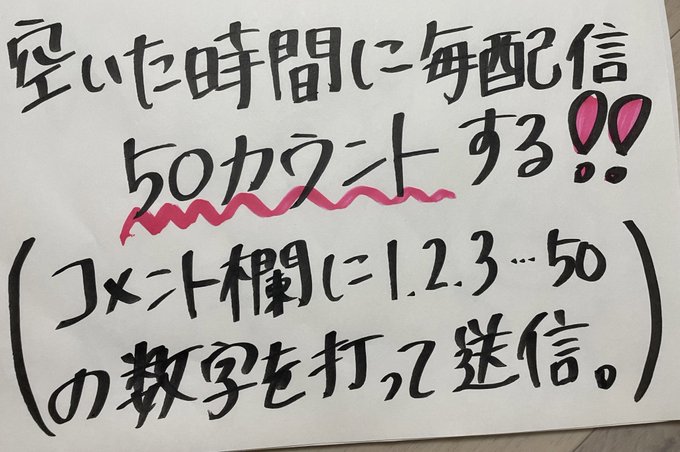 空いた時間に毎配信
50カウントする!!
(コメント欄に1.2.3…50
の数字を打って送信。)